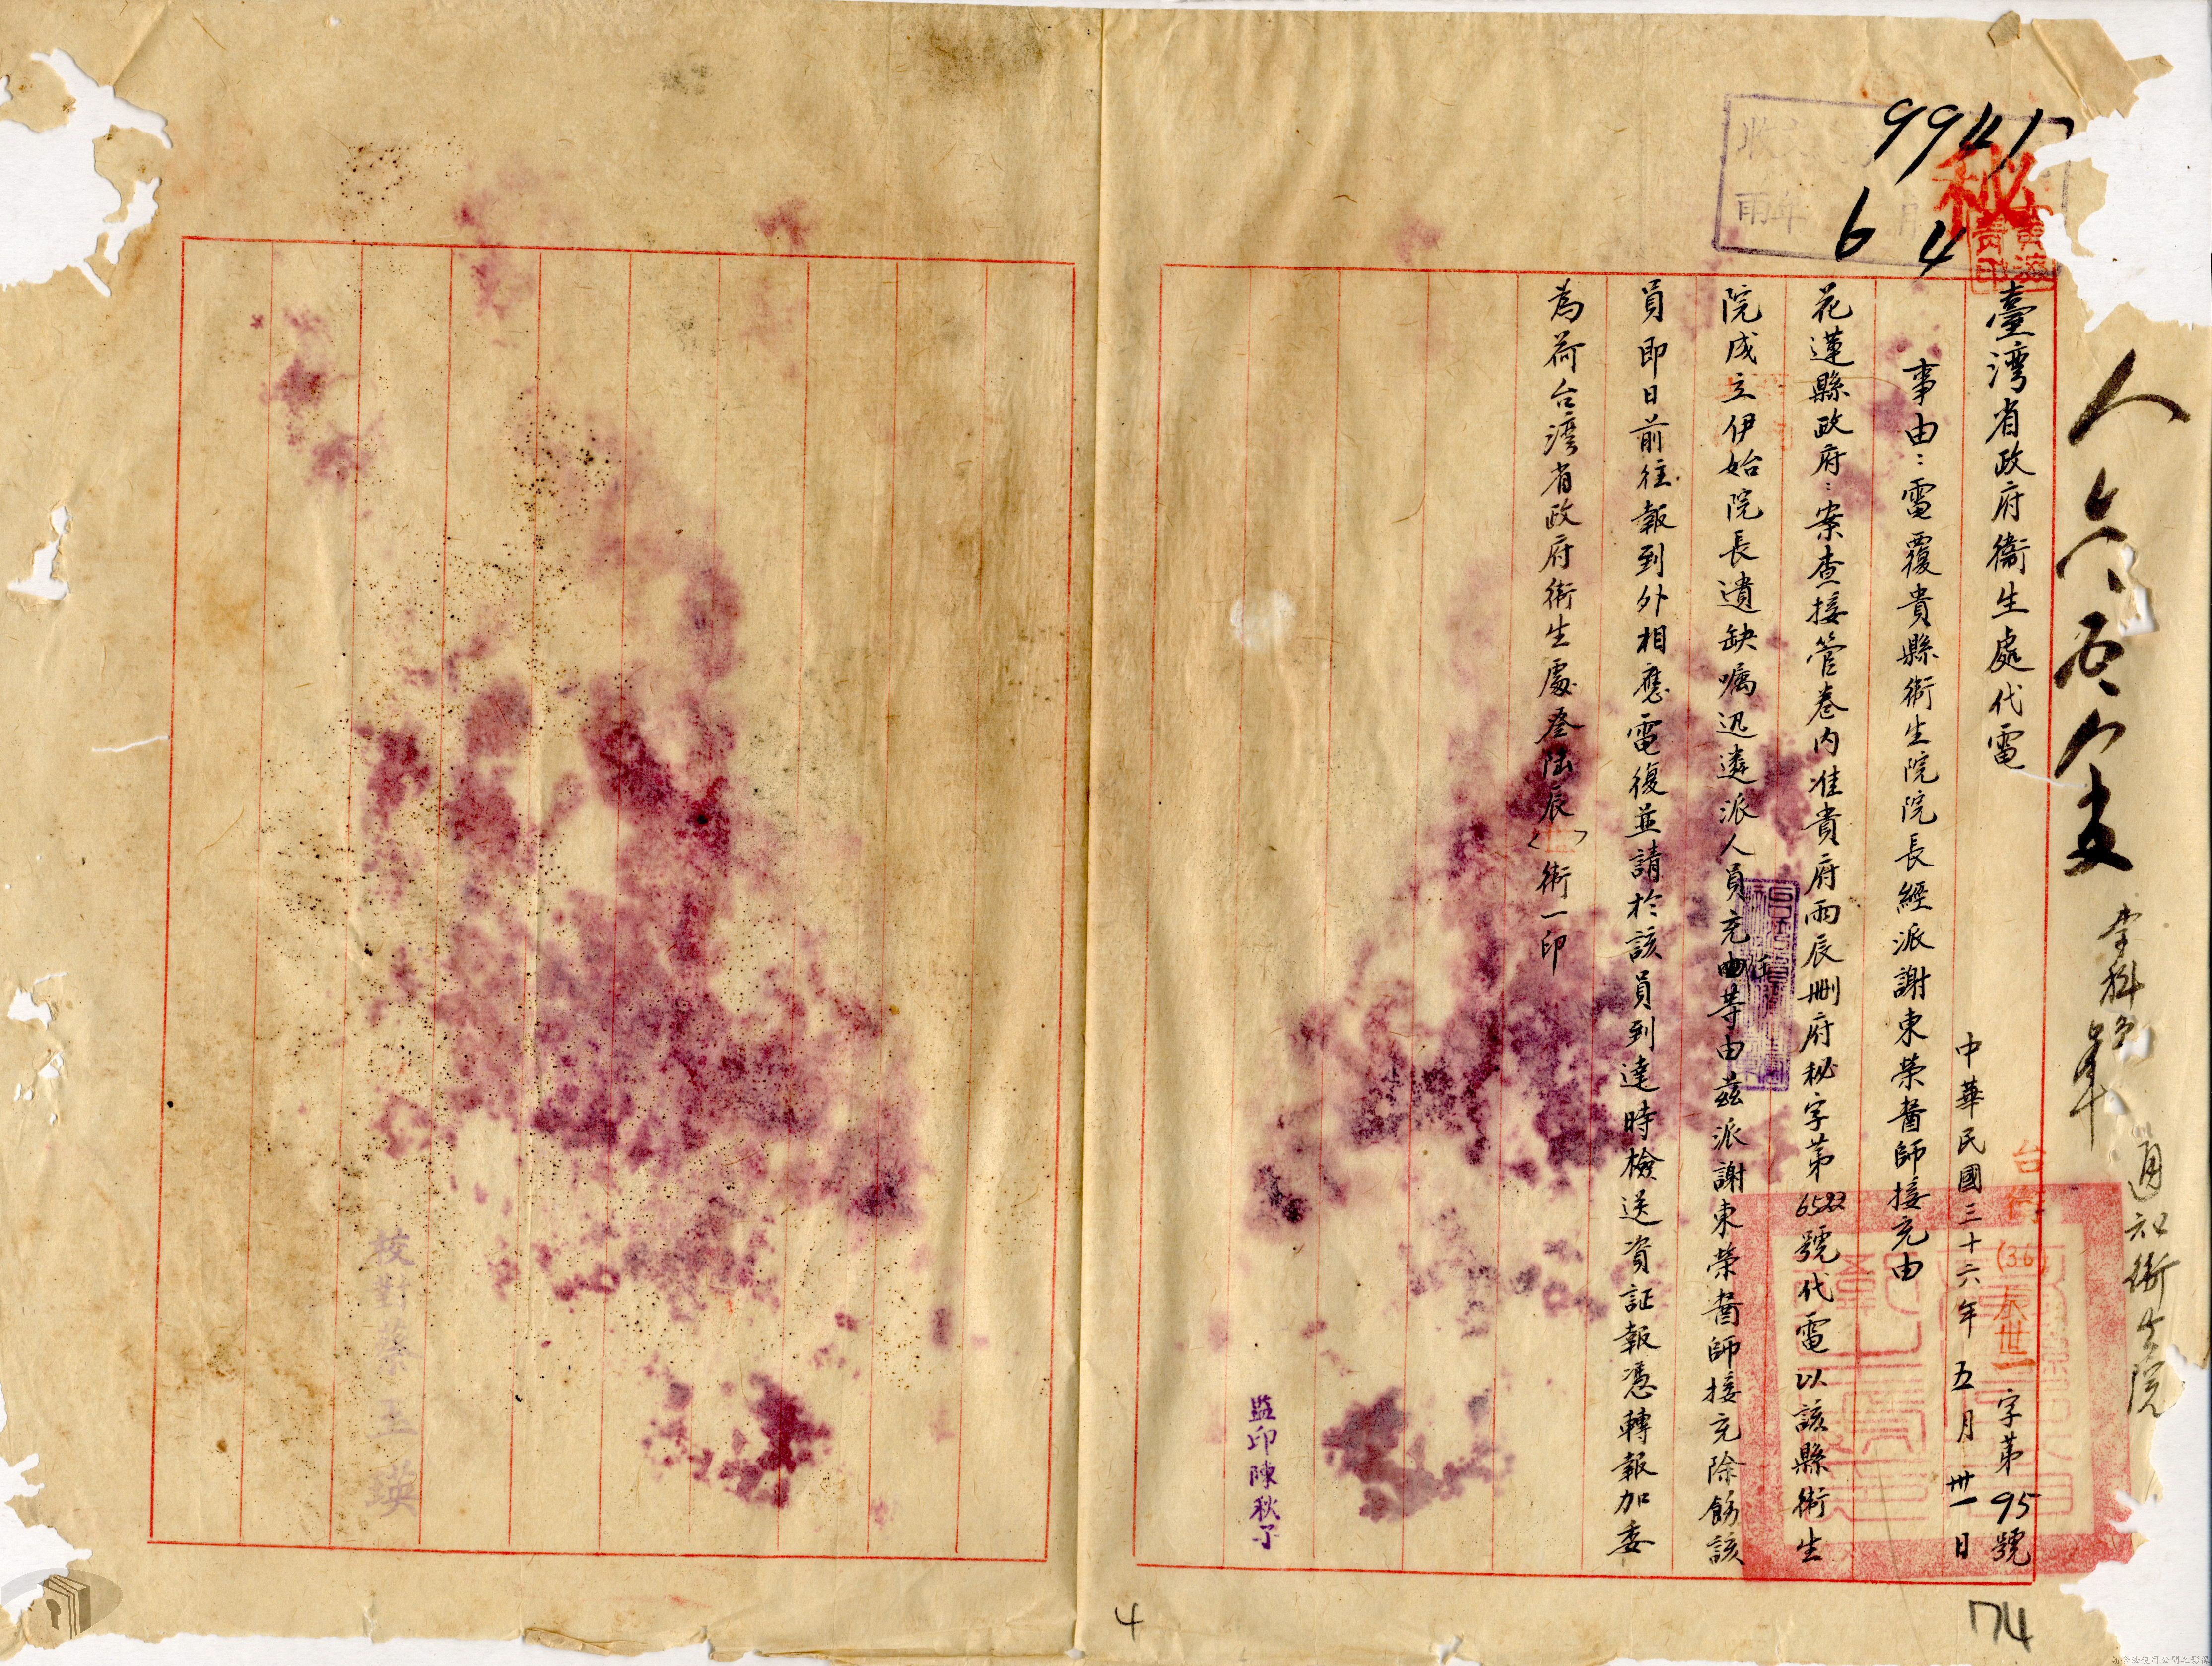 9941
秘
6 4
通知衛生院
臺灣省政府衛生處代電
(36)辰世一字第95號
中華民國三十六年五月卅一日
事由：電覆貴縣衛生院院長經派謝東榮醫師接充由
花蓮縣政府：案查接管卷內准貴府雨辰刪府秘字第6522號代電以該縣衛生
院成立伊始院長遺缺囑迅遴派人員充由等由茲派謝東榮醫師接充除飭該
員即日前往報到外相應電復並請於該員到達時檢送資証報憑轉報加委
為荷台灣省政府衛生處叄陸辰〈〉衛一印
監印陳秋子
校對蔡玉瑛
4
74